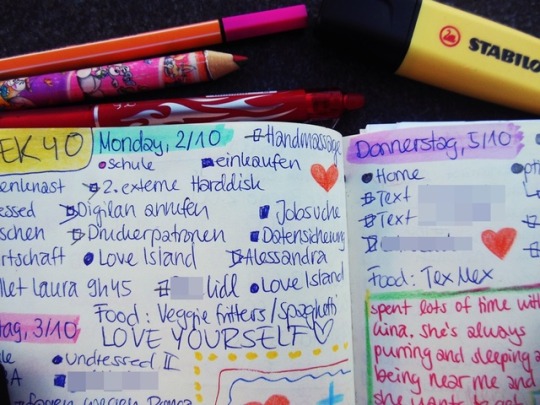 STABILO
EEK 40
Monday, 2/10
Handmassage
schule
einkaufen
2. externe Harddisk
Digilan anrufen
Jobsuche
Druckerpatronen
Datensicherung
Love Island
Alessandra
llet Laura 9h45
Lidl
Love Island
Food: Veggie fritters/Spaghetti
LOVE YOURSELF
tag, 3/10
Undressed II
Donnerstag, 5/10
Home
Text
Text
Food: Tex Mex
spent lots of time with
Luna. She's always
purring and sleeping
being near me and
she want to get